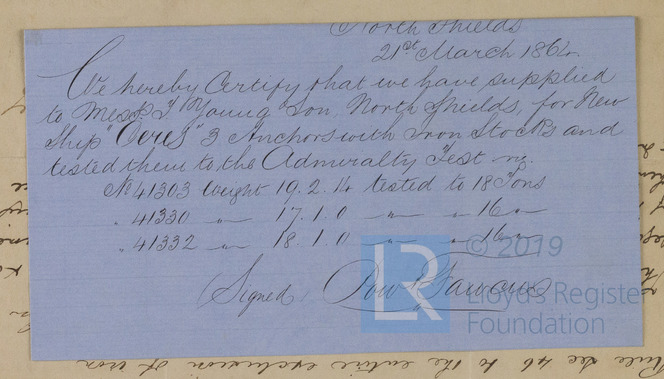 North Shields
21st March 1864
We hereby Certify that we have supplied
to Messrs T Young Son, North Shields, for New
Ship "Ceres" 3 Anchors with Iron Stocks and
tested them to the Admiralty Test viz.
No 41303 Weight 19.2.14 tested to 18 Tons
" 41330 " 17.1.0 " " 16 "
" 41332 " 18.1.0 " " 16 "
(Signed) Pow & Fawcus
LR © 2019
Lloyd's Register
Foundation
Rule Sec 46 to the entire exclusion of iron